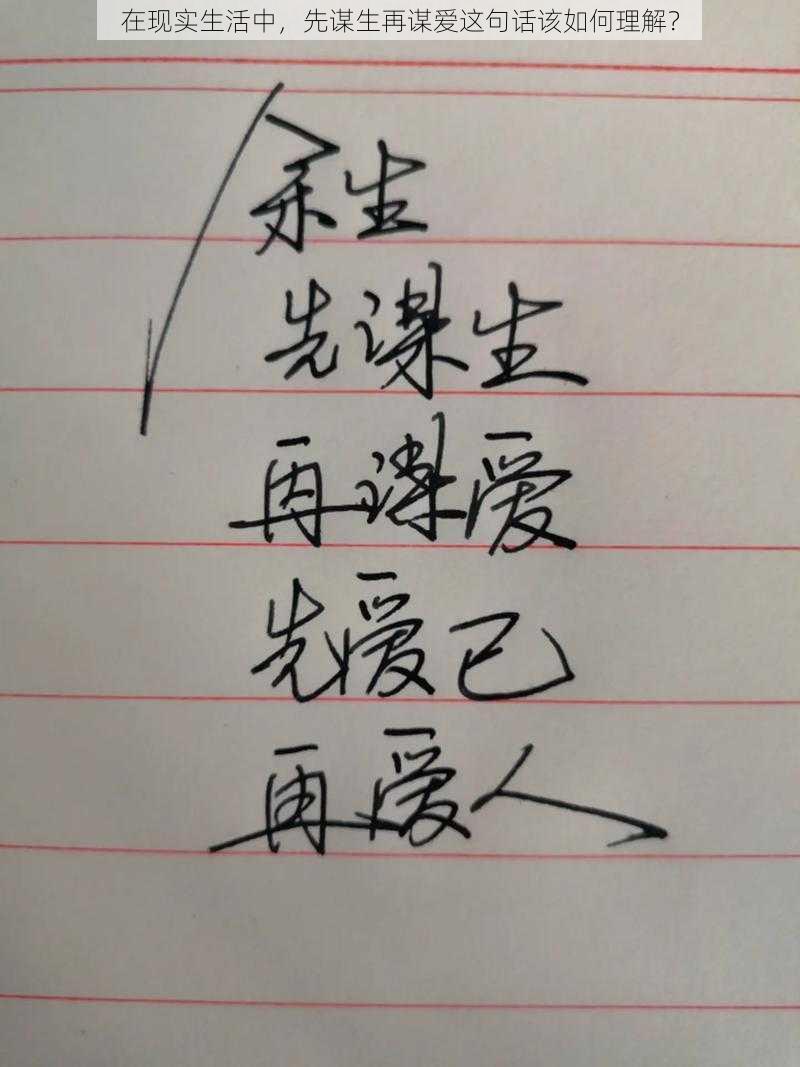 在现实生活中，先谋生再谋爱这句话该如何理解？
余生
先谋生
再谋爱
先爱己
再爱人